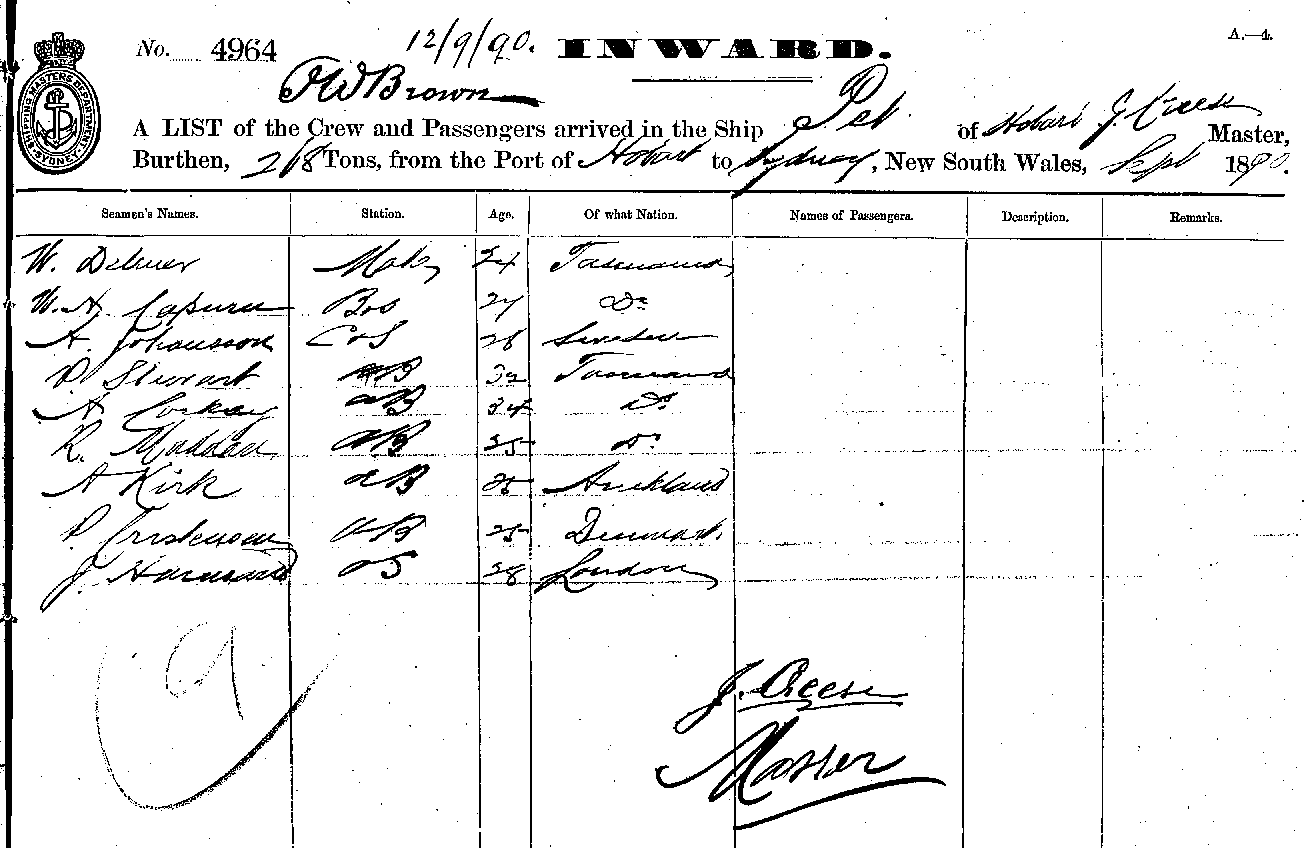 12/9/90.
No. 4964 INWARD. A.—4.
SHIPPING MASTERS DEPARTMENT SYDNEY
Brown
A LIST of the Crew and Passengers arrived in the Ship Pet of Hobart J. Creese Master,
Burthen, 218 Tons, from the Port of Hobart to Sydney, New South Wales, Sept 1890.
Seamen's Names. Station. Age. Of what Nation. Names of Passengers. Description. Remarks.
W. Mate 24 Tasmania
W. A. 27 Do
A. Johansson C & S 26 Sweden
Stewart AB 32 Tasmania
A AB 34 Do
R. Madden AB 25 Do
A Kirk AB 25 Auckland
AB 25 Denmark
J. OS 28 London
9
J. Creese
Master